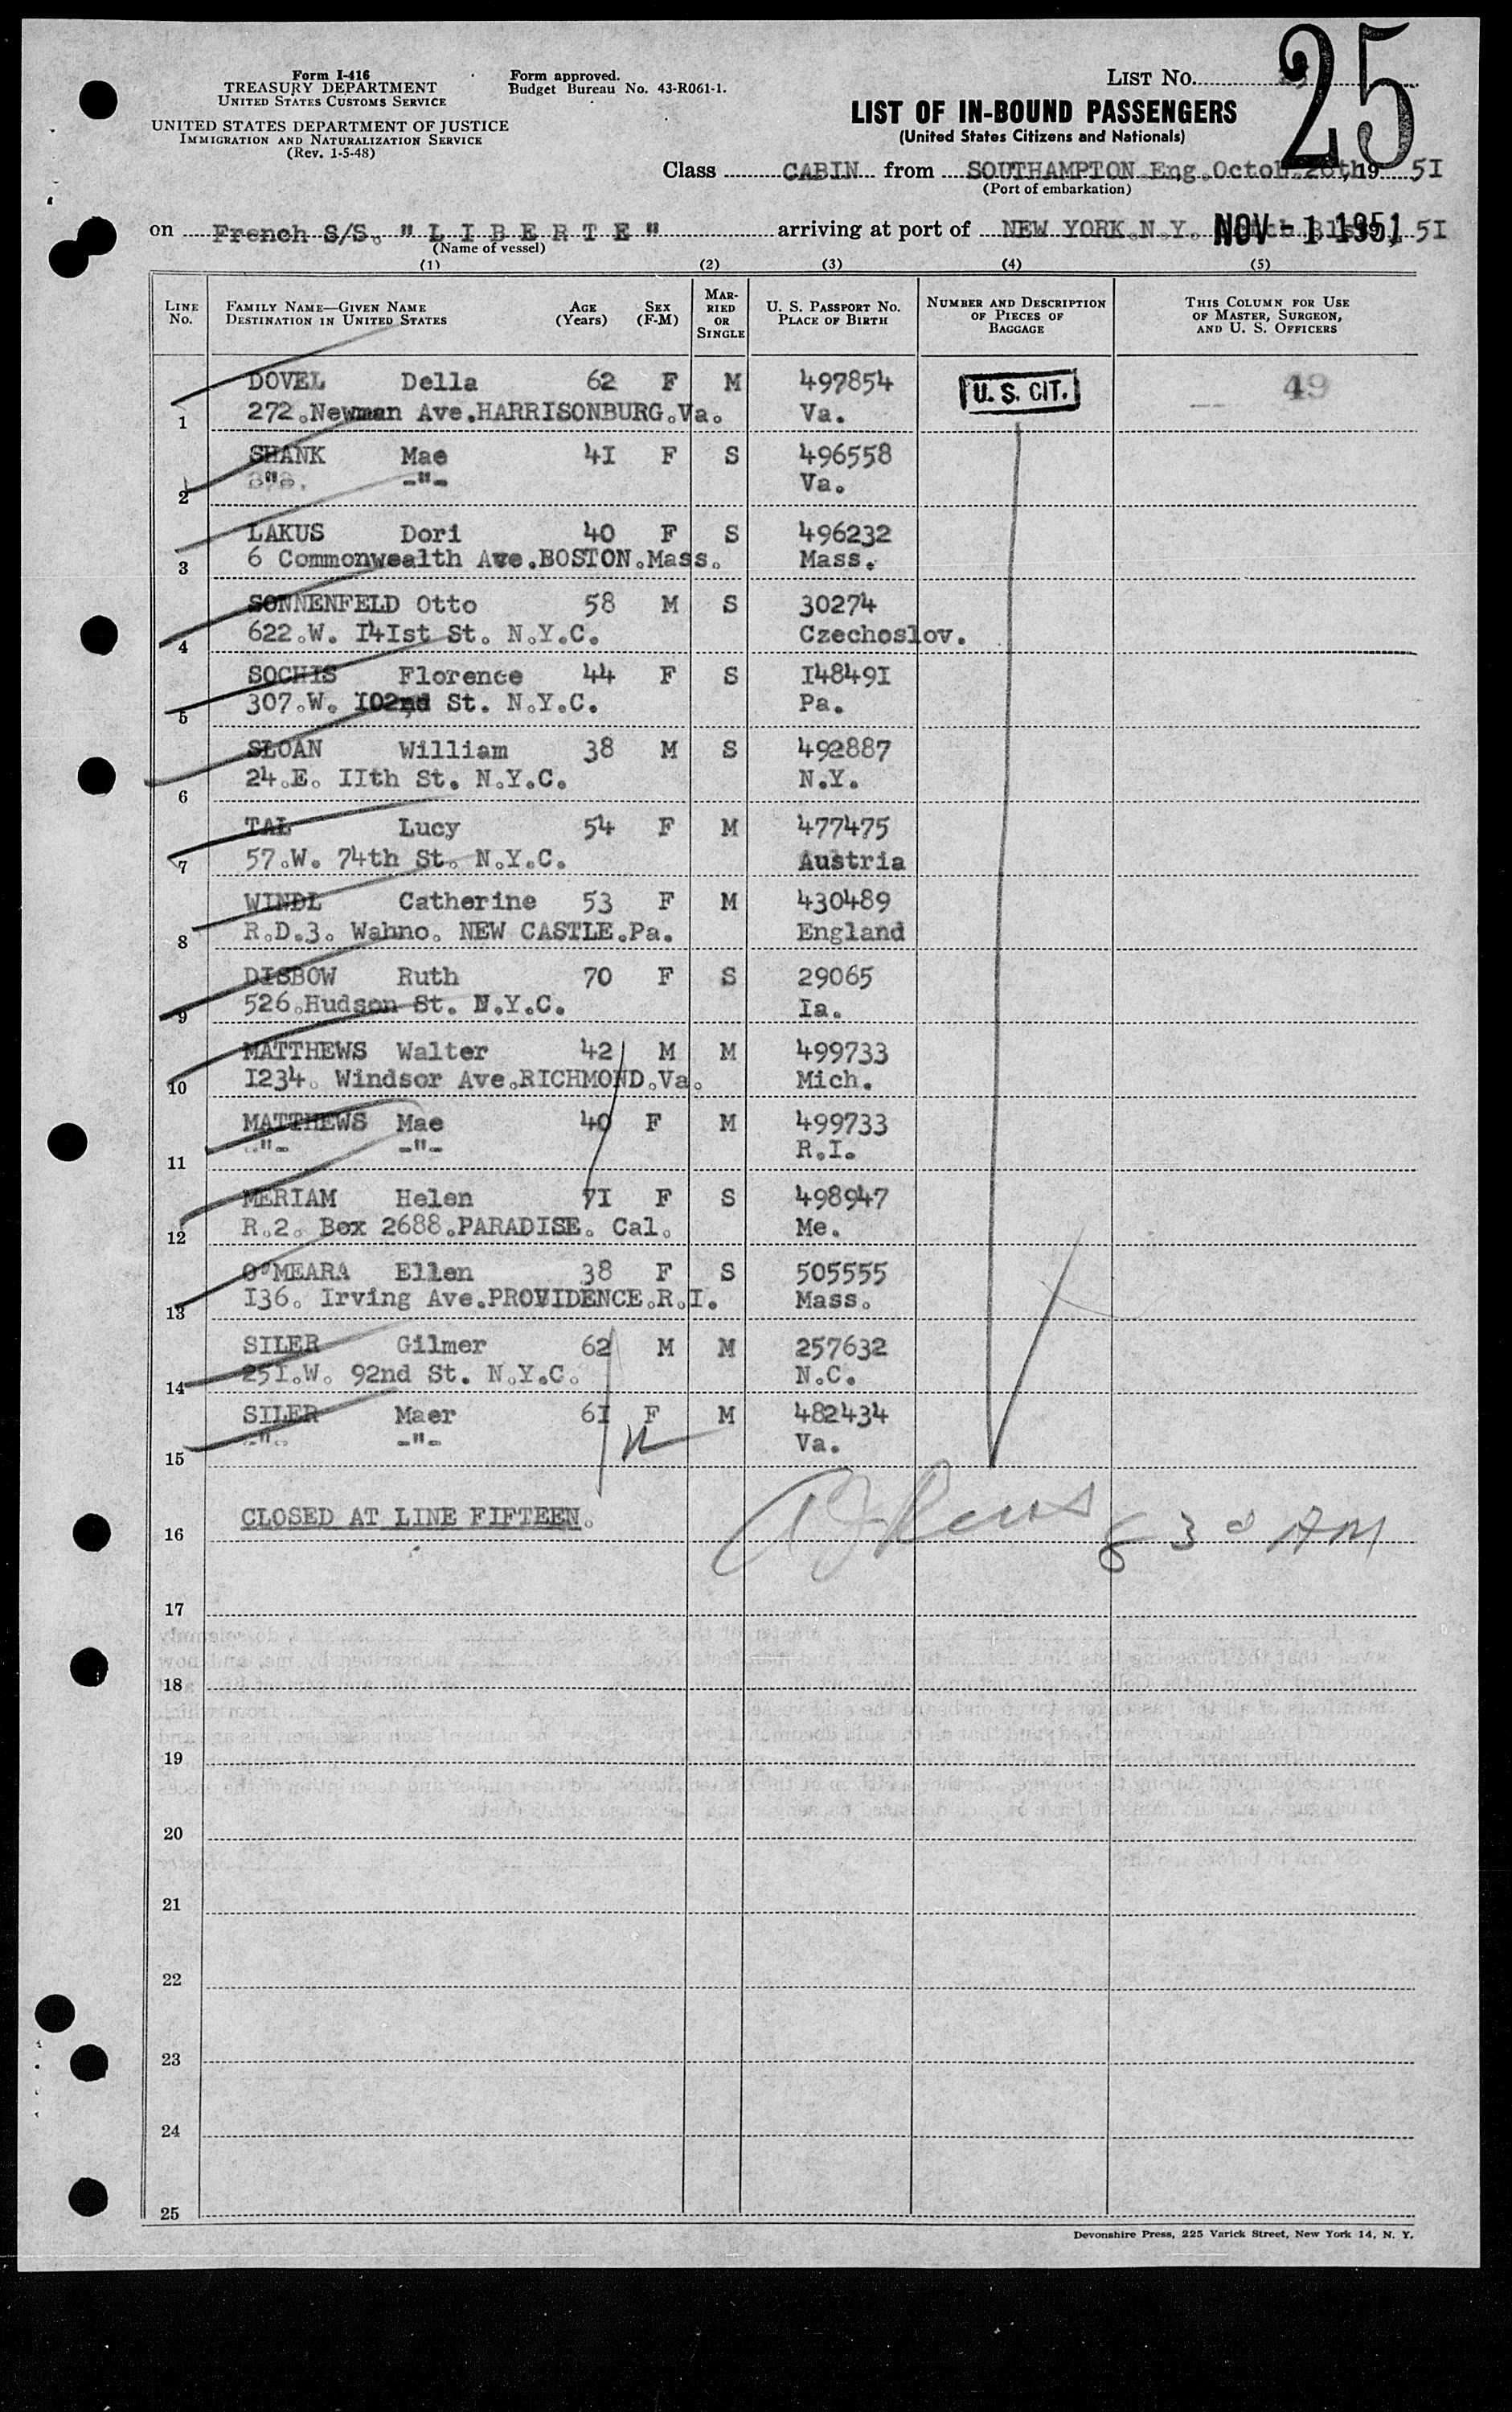 25
Form I-416
TREASURY DEPARTMENT
UNITED STATES CUSTOMS SERVICE
UNITED STATES DEPARTMENT OF JUSTICE
IMMIGRATION AND NATURALIZATION SERVICE
(Rev. 1-5-48)
Form approved.
Budget Bureau No. 43-R061-1.
LIST NO.
LIST OF IN-BOUND PASSENGERS
(United States Citizens and Nationals)
Class CABIN from SOUTHAMPTON Eng. 19 5I
(Port of embarkation)
on French S/S. " L I B E R T E " arriving at port of NEW YORK.N.Y. NOV - 1 1951 5I
(Name of vessel)
(1) (2) (3) (4) (5)
LINE NO. FAMILY NAME—GIVEN NAME DESTINATION IN UNITED STATES AGE (Years) SEX (F-M) MARRIED OR SINGLE U. S. PASSPORT NO. PLACE OF BIRTH NUMBER AND DESCRIPTION OF PIECES OF BAGGAGE THIS COLUMN FOR USE OF MASTER, SURGEON, AND U. S. OFFICERS
DOVEL Della 62 F M 497854 U. S. CIT. 49
1 272.Newman Ave.HARRISONBURG.Va. Va.
SHANK Mae 4I F S 496558
2 -"- Va.
LAKUS Dori 40 F S 496232
3 6 Commonwealth Ave.BOSTON.Mass. Mass.
SONNENFELD Otto 58 M S 30274
4 622.W. I4Ist St. N.Y.C. Czechoslov.
SOCHIS Florence 44 F S I4849I
5 307.W. I02nd St. N.Y.C. Pa.
SLOAN William 38 M S 492887
6 24.E. IIth St. N.Y.C. N.Y.
TAL Lucy 54 F M 477475
7 57.W. 74th St. N.Y.C. Austria
WINDL Catherine 53 F M 430489
8 R.D.3. Wahno. NEW CASTLE.Pa. England
DISBOW Ruth 70 F S 29065
9 526.Hudson St. N.Y.C. Ia.
MATTHEWS Walter 42 M M 499733
10 I234. Windsor Ave.RICHMOND.Va. Mich.
MATTHEWS Mae 40 F M 499733
11 -"- -"- R.I.
MERIAM Helen 7I F S 498947
12 R.2. Box 2688.PARADISE. Cal. Me.
O'MEARA Ellen 38 F S 505555
13 I36. Irving Ave.PROVIDENCE.R.I. Mass.
SILER Gilmer 62 M M 257632
14 25I.W. 92nd St. N.Y.C. N.C.
SILER Maer 6I F M 482434
15 -"- -"- Va.
16 CLOSED AT LINE FIFTEEN. 830 AM
17
18
19
20
21
22
23
24
25
Devonshire Press, 225 Varick Street, New York 14, N. Y.